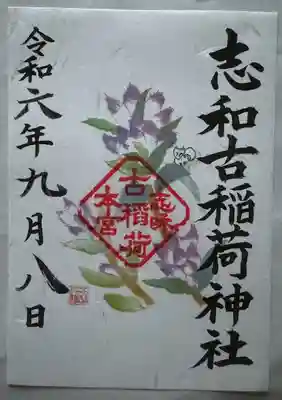 志和古稲荷神社
古稲荷
本宮
令和六年九月八日